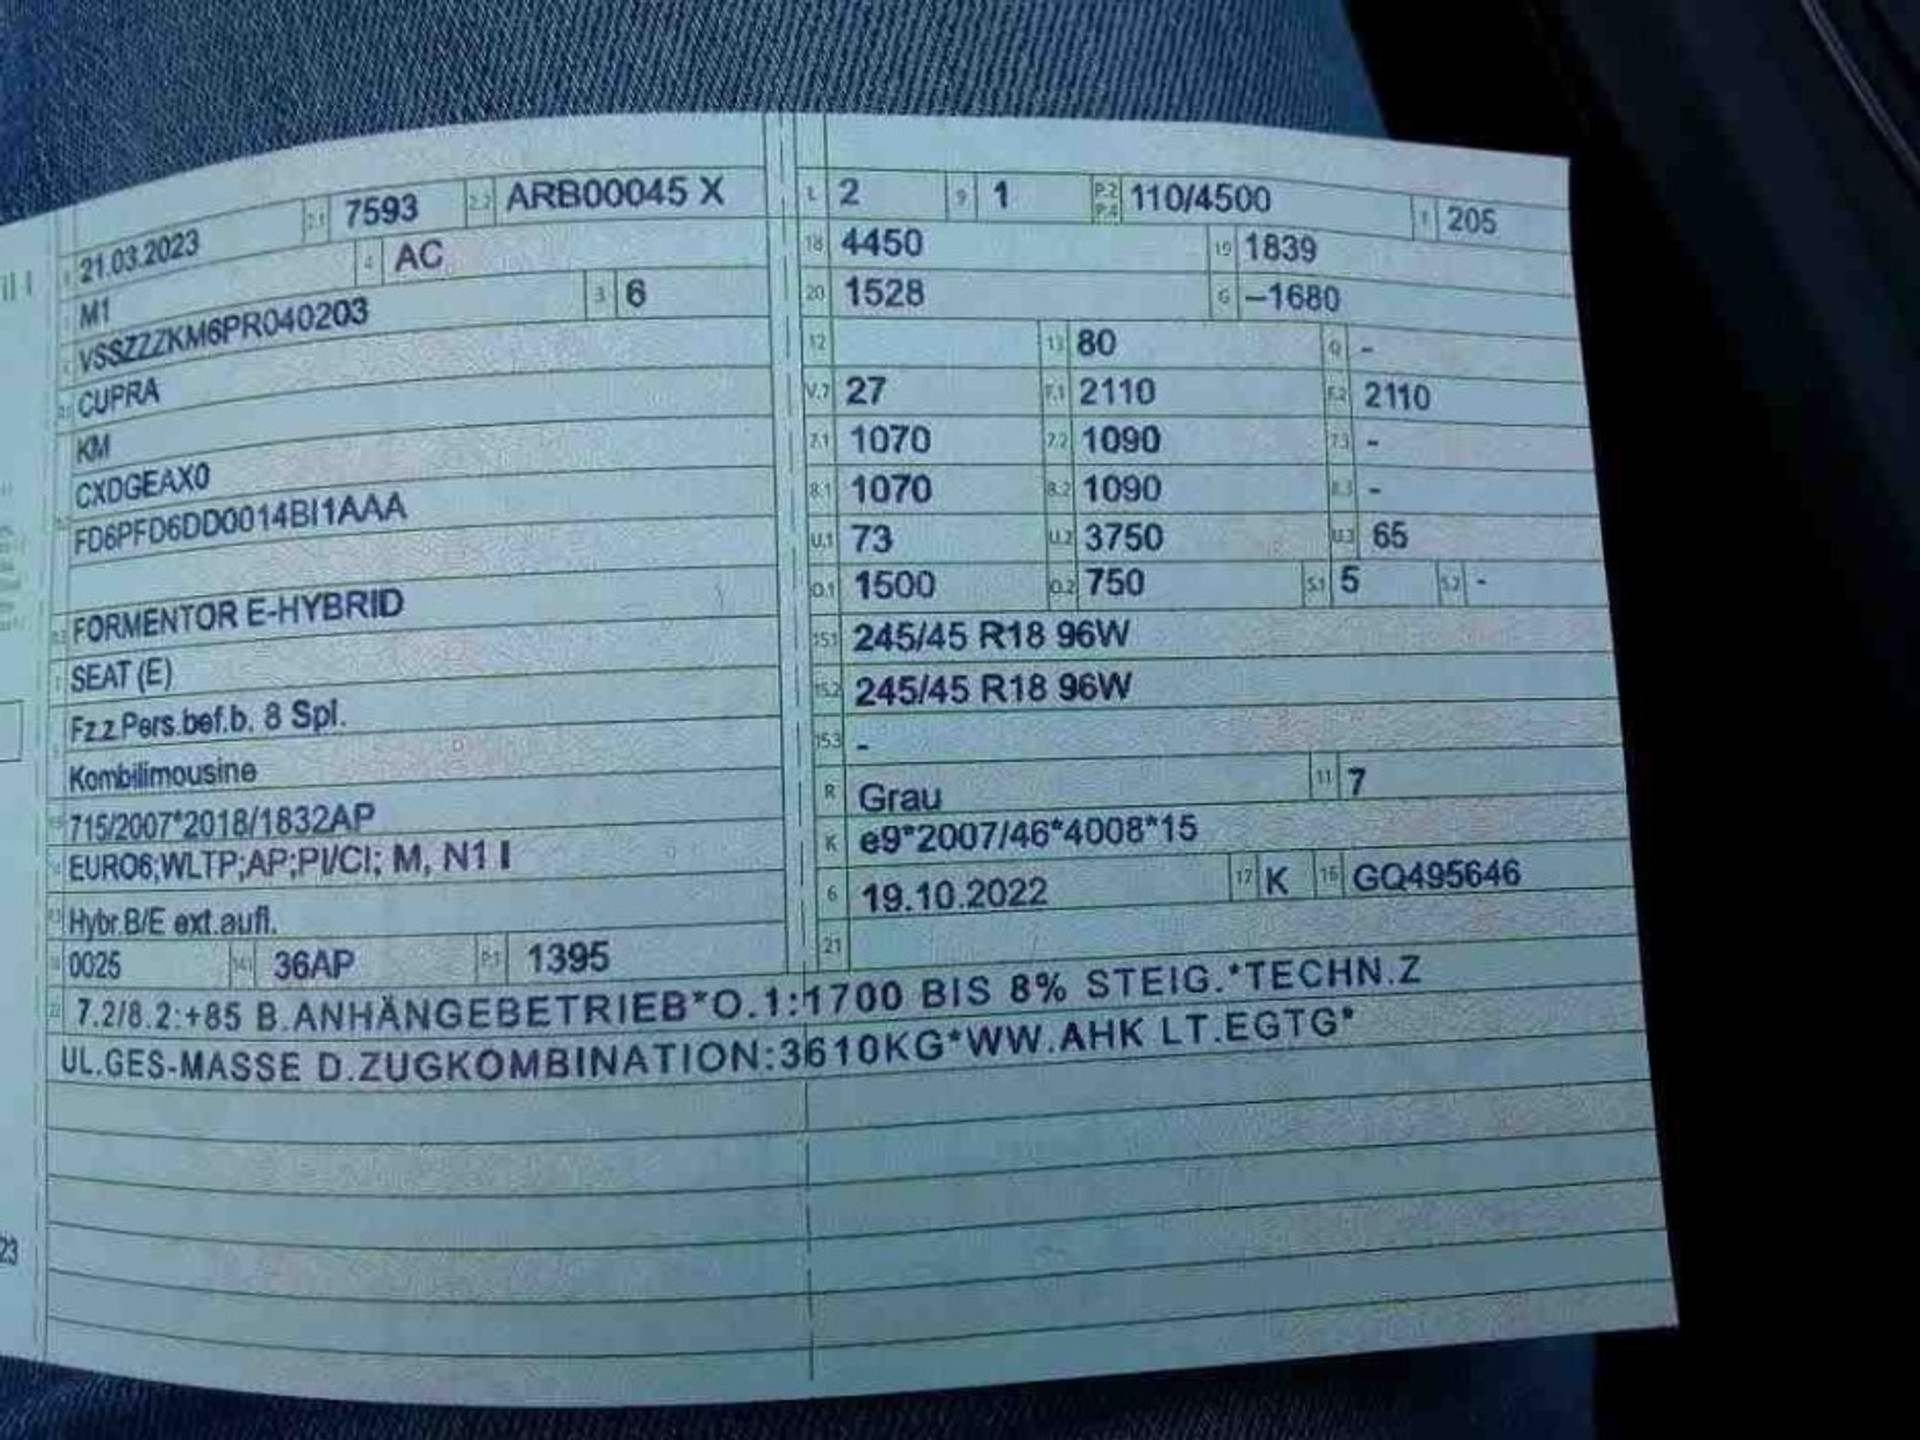 21.03.2023 2.1 7593 2.2 ARB00045 X
M1 4 AC
VSSZZZKM6PR040203 3 6
CUPRA
KM
CXDGEAX0
FD6PFD6DD0014BI1AAA
FORMENTOR E-HYBRID
SEAT (E)
Fz.z.Pers.bef.b. 8 Spl.
Kombilimousine
715/2007*2018/1832AP
EURO6;WLTP;AP;PI/CI; M, N1 I
Hybr.B/E ext.aufl.
0025 14.1 36AP P.1 1395
L 2 9 1 P.2 P.4 110/4500 T 205
18 4450 19 1839
20 1528 G –1680
12 13 80 Q -
V.7 27 F.1 2110 F.2 2110
7.1 1070 7.2 1090 7.3 -
8.1 1070 8.2 1090 8.3 -
U.1 73 U.2 3750 U.3 65
O.1 1500 O.2 750 S.1 5 S.2 -
15.1 245/45 R18 96W
15.2 245/45 R18 96W
15.3 -
R Grau 11 7
K e9*2007/46*4008*15
6 19.10.2022 17 K 16 GQ495646
21
22 7.2/8.2:+85 B.ANHÄNGEBETRIEB*O.1:1700 BIS 8% STEIG.*TECHN.Z
UL.GES-MASSE D.ZUGKOMBINATION:3610KG*WW.AHK LT.EGTG*
23